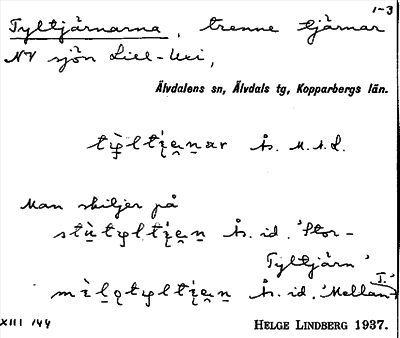 1-3
Tyltjärnarna, trenne tjärnar
NV sjön Lill-Uxi,
Älvdalens sn, Älvdals tg, Kopparbergs län.
ås. M.A.L.
Man skiljer på
ås. id. 'Stor-
Tyltjärn'
ås. id. 'Mellan-T.'
XIII 144
HELGE LINDBERG 1937.